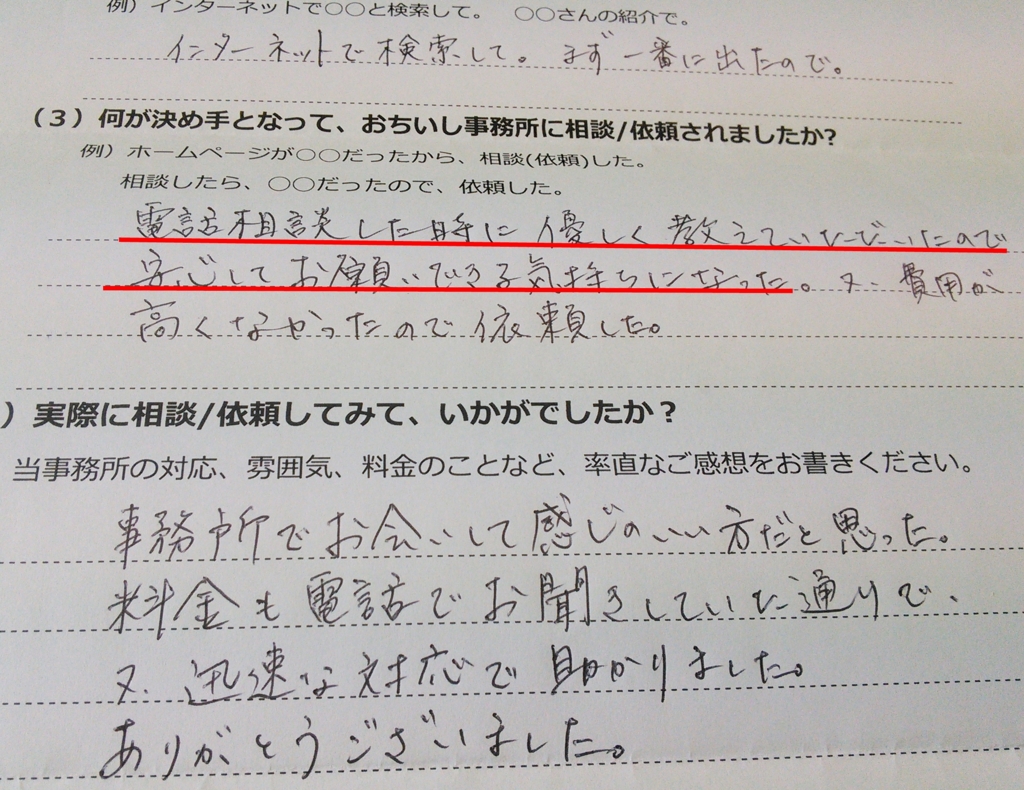 例）インターネットで○○と検索して。　○○さんの紹介で。
インターネットで検索して。まず一番に出たので。
（３）何が決め手となって、おちいし事務所に相談/依頼されましたか?
例）ホームページが○○だったから、相談(依頼)した。
相談したら、○○だったので、依頼した。
電話相談した時に優しく教えていただいたので
安心してお願いできる気持ちになった。又、費用が
高くなかったので依頼した。
）実際に相談/依頼してみて、いかがでしたか？
当事務所の対応、雰囲気、料金のことなど、率直なご感想をお書きください。
事務所でお会いして感じのいい方だと思った。
料金も電話でお聞きしていた通りで、
又、迅速な対応で助かりました。
ありがとうございました。